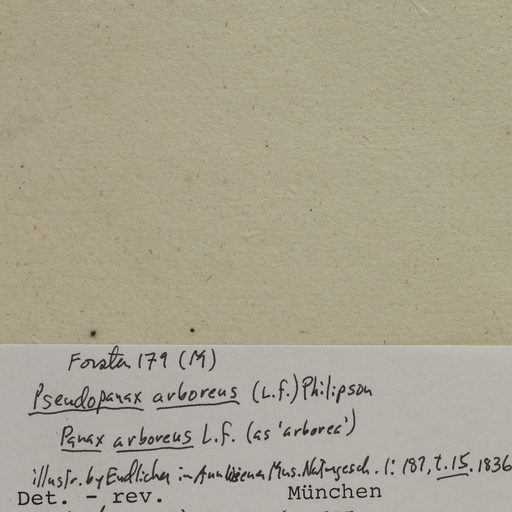 Forster 179 (M)
Pseudopanax arboreus (L.f.) Philipson
Panax arboreus L.f. (as 'arborea')
illustr. by Endlicher in Ann. Wiener Mus. Naturgesch. 1: 187, t.15. 1836
Det. - rev. München